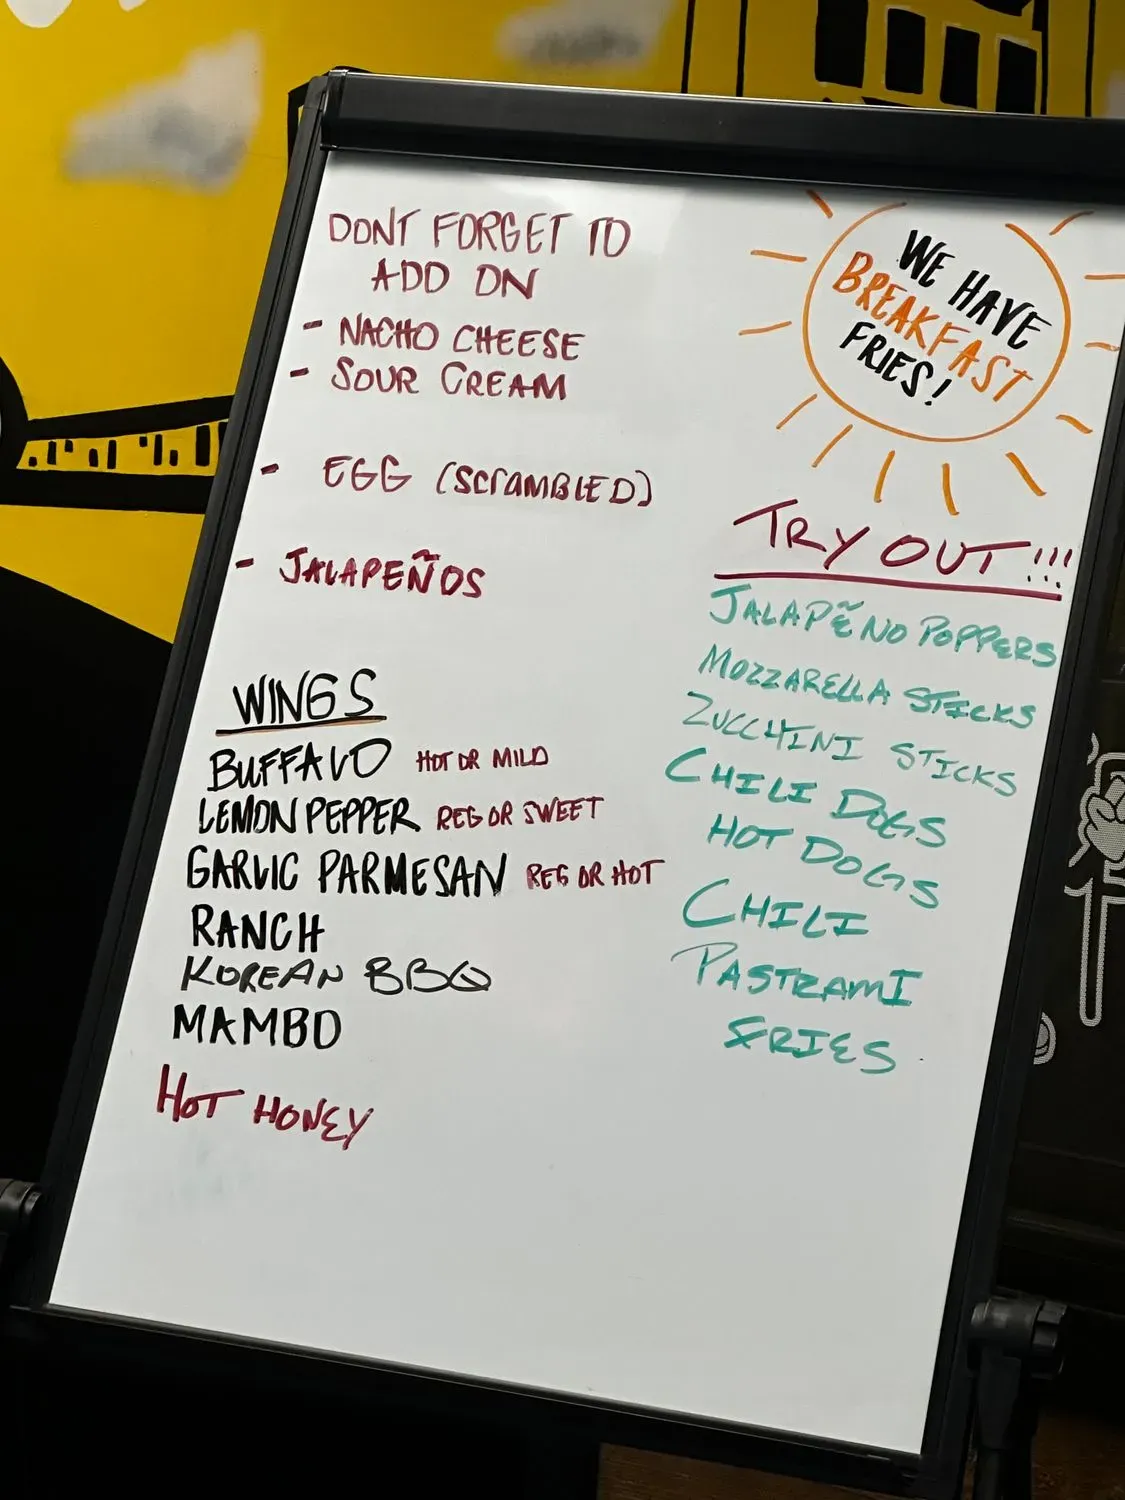 DONT FORGET TO
ADD ON
- NACHO CHEESE
- SOUR CREAM
- EGG (SCRAMBLED)
- JALAPEÑOS
WINGS
BUFFALO HOT OR MILD
LEMON PEPPER REG OR SWEET
GARLIC PARMESAN REG OR HOT
RANCH
KOREAN BBQ
MAMBO
HOT HONEY
WE HAVE
BREAKFAST
FRIES!
TRY OUT!!!
JALAPẼNO POPPERS
MOZZARELLA STICKS
ZUCCHINI STICKS
CHILI DOGS
HOT DOGS
CHILI
PASTRAMI
FRIES